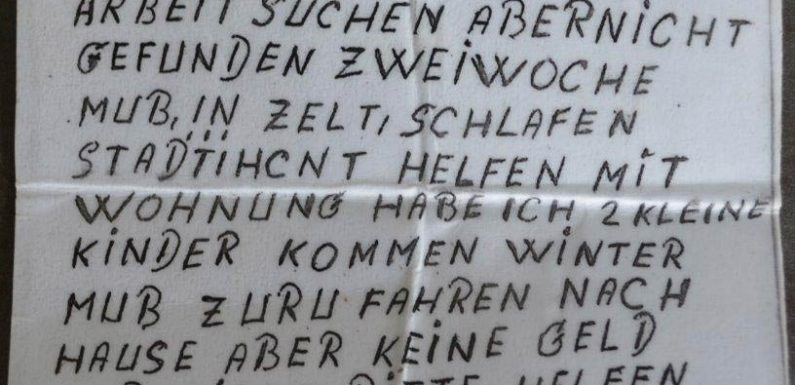 ARBEIT SUCHEN ABERNICHT
GEFUNDEN ZWEIWOCHE
MUB, IN ZELT, SCHLAFEN
STADTIHCNT HELFEN MiT
WOHNUNG HABE ICH 2 KLEINE
KiNDER KOMMEN WiNTER
MUB ZURU FAHREN NACH
HAUSE ABER KEiNE GELD
HELFEN